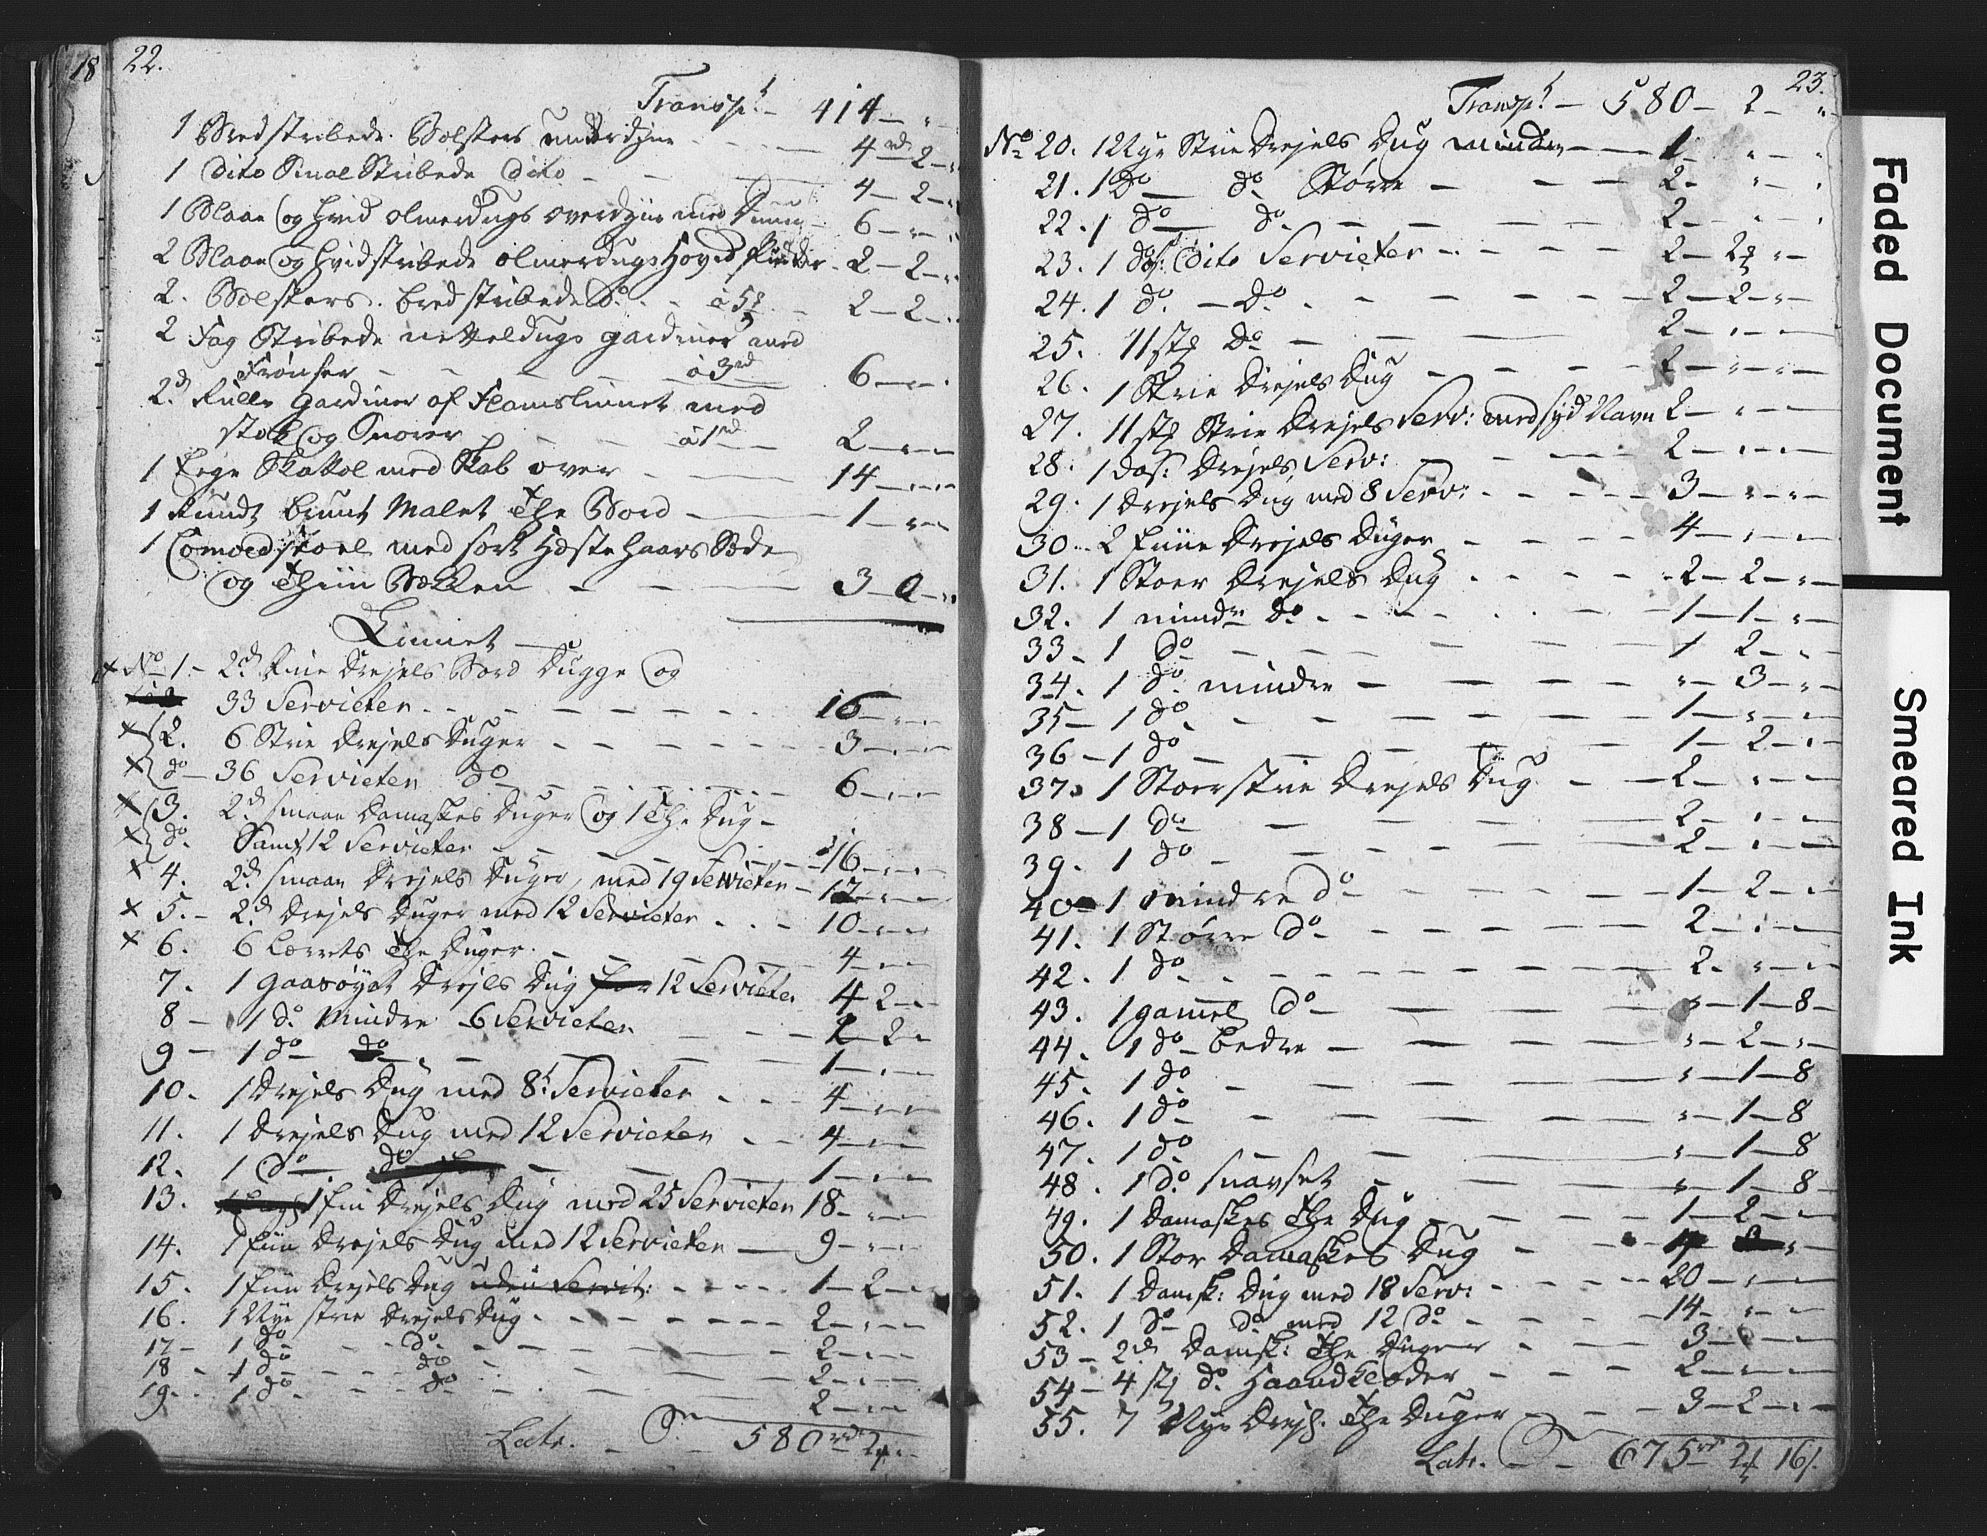 18
22.
Transpt – 414 – " –
1 Bredstribede Bolsters underdyne – – – 4rd 2 – "
1 Dito Smal Stribede Dito – – – 4 – 2 – "
1 Blaae og hvid olmerdugs overdyne med – 6 – " – "
2 Blaae og hvidstribede olmerdugs Hoved – 2 – 2 – "
2. Bolsters. bredstribede do. – à 5 – 2 – 2 – "
2 Fag Stribede netteldugs gardiner med
Frønser – – – à 3rd – 6 – " –
2d Rulle Gardiner af Flamslinnet med
stok og Snorer – – à 1rd – 2 – " – "
1 Ege Skattol med Skab over – – 14 – " – "
1 Rundt bruunt Malet The Bord – – 1 – " – "
1 Comoedstoel med sort Hæstehaars Sæde
og Thiin Bækken – – – 3 – 0 – "
Linnet
x No 1. – 2d Fine Drejels Bord Dugge og
33 Servietter – – – 16 – " – "
x 2. 6 Strie Drejels Duger – – – 3 – " – "
x do – 36 Servietter do – – – 6 – " – "
x 3. 2d smaae Damaskes Duger og 1 The Dug –
x do. Samt 12 Servietter – – – 16 – " – "
x 4. 2d smaae Drejels Duger, med 19 Servietter – 12 – " – "
x 5. – 2d Drejels Duger med 12 Servietter – – 10 – " – "
x 6. 6 Lærrets The Duger – – – 4 – " – "
7. 1 Gaasøyet Drejls Dug 12 Servietter 4 – 2 – "
8 – 1 do Mindre – 6 Servietter – – 2 – "
9 – 1 do do – – – 1 – " – "
10. 1 Drejels Dug med 8t Servietter – – 4 – " – "
11. 1 Drejels Dug med 12 Servietter – – 4 – " – "
12. 1 do – do – – 1 – " – "
13. 1 fin Drejels Dug med 25 Servietter 18 – " – "
14. 1 fiin Drejels Dug med 12 Servietter – 9 – " – "
15. 1 fiin Drejels Dug uden Serviet: – – 1 – 2 – "
16. 1 Nye strie Drejels Dug – – – 2 – " – "
17 – 1 do – – do – – 2 – " – "
18 – 1 do – – do – – 2 – " – "
19. – 1 do – – do – – 2 – " – "
Latr. – – 580rd 2 – "
23.
Transpt – 580 – 2 – "
No 20. 1 Nye Strie Drejels Dug mindre – 1 – " – "
21. 1 do – do Større – – – 2 – " – "
22. 1 do – do – – – 2 – " – "
23. 1 dos: Dito Servietter – – – 2 – 2 – "
24. 1 do. – do. – – – 2 – 2 – "
25. 11 stk do – – – 2 – " – "
26. 1 Strie Drejels Dug – – – 2 – " – "
27. 11 stk Strie Drejels Serv: med syd Navn 2 – " – "
28. 1 dos: Drejels Serv: – – – 2 – " – "
29. 1 Drejels Dug med 8 Serv: – – – 3 – " – "
30. – 2 fiine Drejels Duger – – – 4 – " – "
31. 1 Stoer Drejels Dug – – – 2 – 2 – "
32. 1 mindre do – – – 1 – 1 – "
33 – 1 do – – – 1 2 – "
34. 1 do. mindre – – – " – 3 – "
35 – 1 do. – – – 1 – " – "
36 – 1 do – – – 1 – 2 – "
37. 1 Stoer strie Drejels Dug – – 2 – " – "
38 – 1 do – – – 2 – " – "
39. 1 do – – – 2 – " – "
40 – 1 mindre do – – – 1 – 2 – "
41. 1 Større do – – – 2 – " – "
42. 1 do – – – 2 – " – "
43. 1 gamel do – – – " – 1 – 8 –
44. 1 do – bedre – – – " – 2 – "
45. 1 do – – – " – 1 – 8
46. 1 do – – – " – 1 – 8
47. 1 do – – – " – 1 – 8
48. 1 do. snavset – – – " – 1 – 8 –
49. 1 Damaskes The Dug – – – 1 – 2 – "
50. 1 Stor Damaskes Dug – –
51. 1 Damsk: Dug med 18 Serv: – – – 20 – " – "
52. 1 do do med 12 do – – – 14 – " – "
53 – 2de Damsk: The Duger – – – 3 – " – "
54 – 4 stk do. Haandklæder – – 2 – " – "
55. 7 Nye Drejs. The Duger – – – 3 – 2 – "
Latr. – – 675rd 2 16s.
Faded Document
Smeared Ink